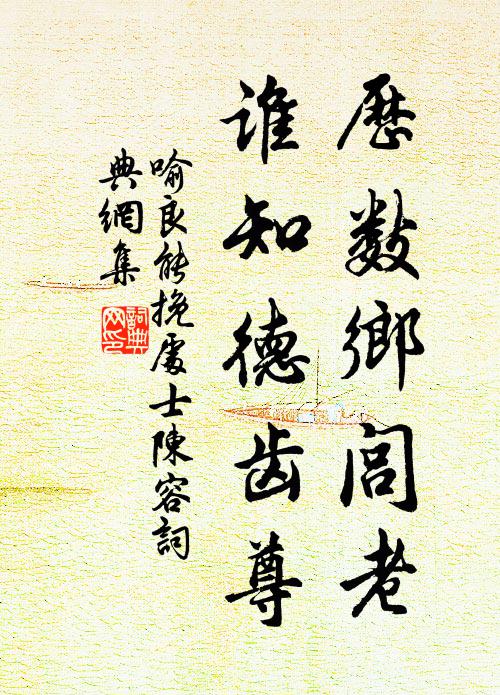 歷數鄉閭老
誰知德齿尊
喻良能挽處士陳容詞
典網集
詞典
网印